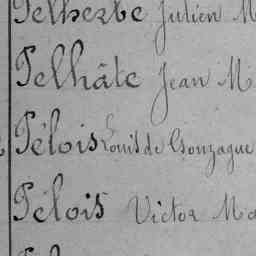 Pelherbe Julien M
Pelhâte Jean M
Pélois Louis de Gonzague
Pélois Victor Ma